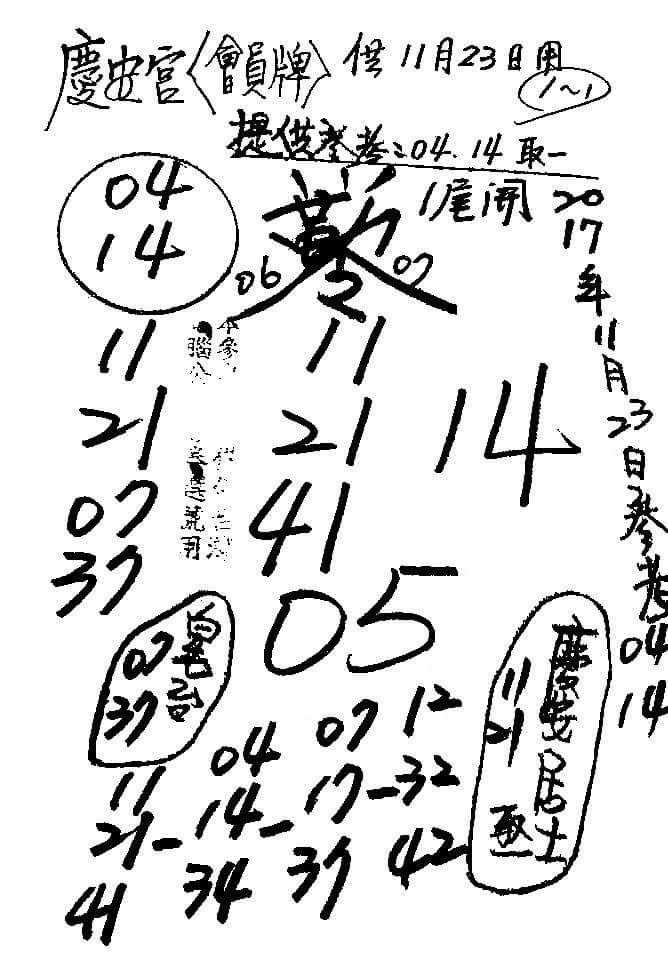 慶安宮〈會員牌〉供11月23日用
1~1
提供參考:04.14取一
04
14
1尾開
06 07
2017年11月23日參考
04
14
11
21
07
37
11
21
41
14
05
07
37
慶安居士
11
21
取一
04 07 12
11 14 17 32
21 - - -
41 34 37 42